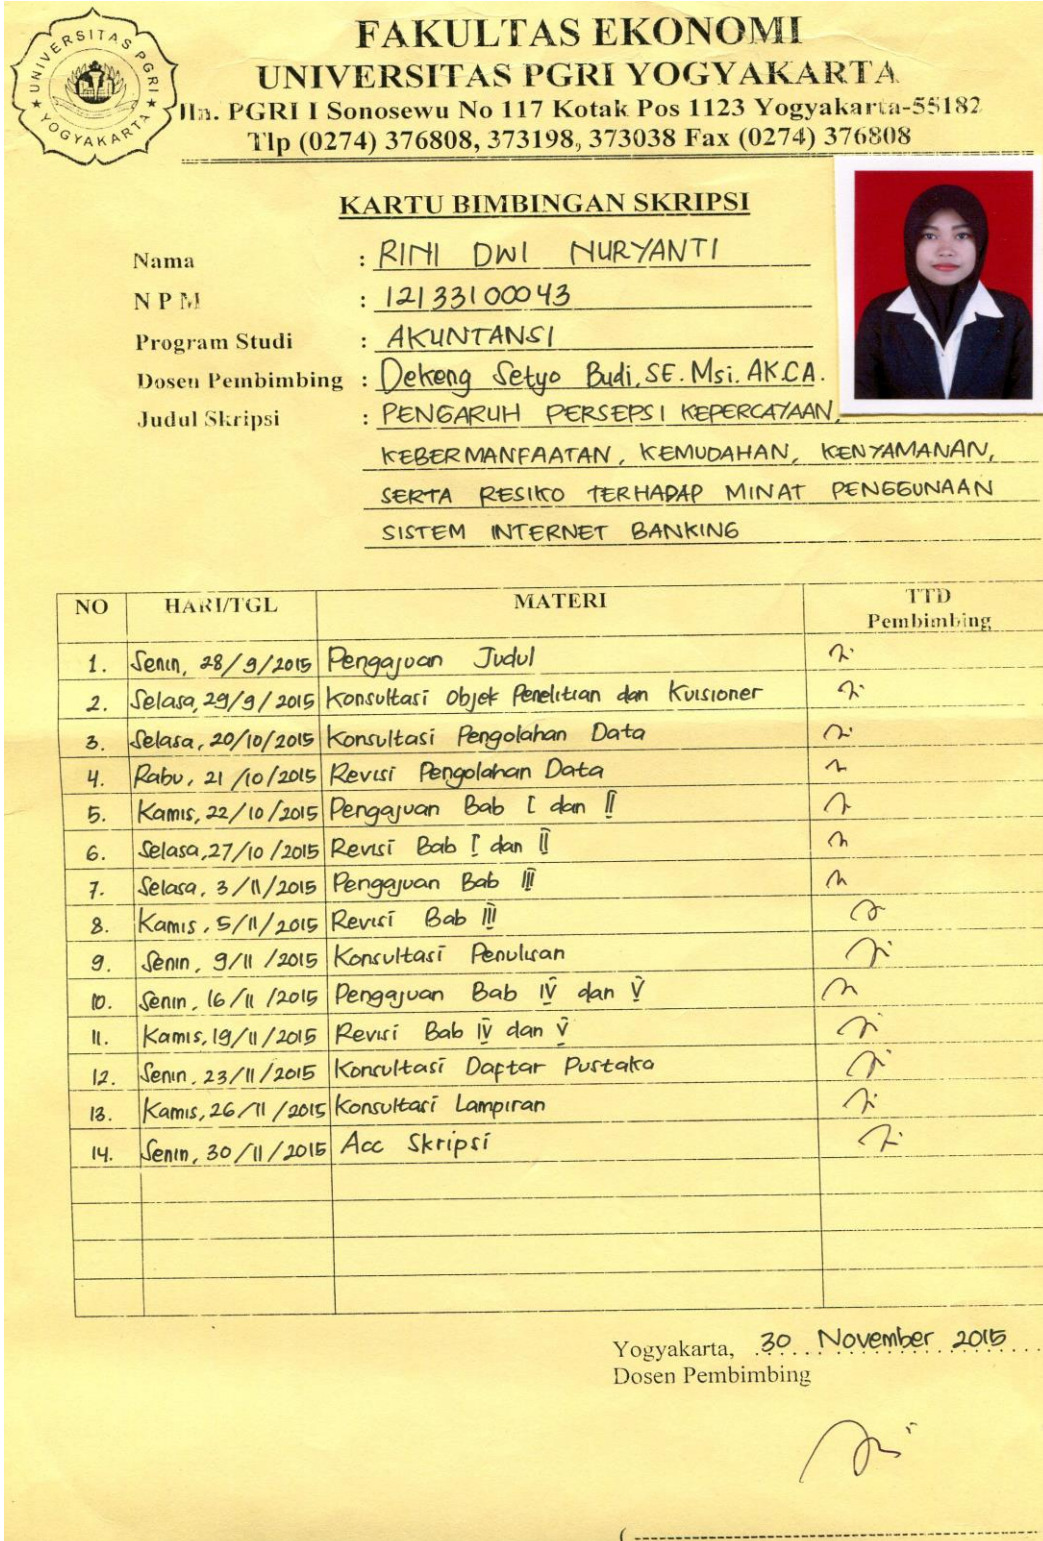 UNIVERSITAS PGRI
YOGYAKARTA
FAKULTAS EKONOMI
UNIVERSITAS PGRI YOGYAKARTA
Jln. PGRI I Sonosewu No 117 Kotak Pos 1123 Yogyakarta-55182
Tlp (0274) 376808, 373198, 373038 Fax (0274) 376808
KARTU BIMBINGAN SKRIPSI
Nama : RINI DWI NURYANTI
N P M : 12133100043
Program Studi : AKUNTANSI
Dosen Pembimbing : Dekeng Setyo Budi, SE. Msi. AK.CA.
Judul Skripsi : PENGARUH PERSEPSI KEPERCAYAAN,
KEBERMANFAATAN, KEMUDAHAN, KENYAMANAN,
SERTA RESIKO TERHADAP MINAT PENGGUNAAN
SISTEM INTERNET BANKING
NO HARI/TGL MATERI TTD
Pembimbing
1. Senin, 28/9/2015 Pengajuan Judul
2. Selasa, 29/9/2015 Konsultasi Objek Penelitian dan Kuisioner
3. Selasa, 20/10/2015 Konsultasi Pengolahan Data
4. Rabu, 21/10/2015 Revisi Pengolahan Data
5. Kamis, 22/10/2015 Pengajuan Bab I dan II
6. Selasa, 27/10/2015 Revisi Bab I dan II
7. Selasa, 3/11/2015 Pengajuan Bab III
8. Kamis, 5/11/2015 Revisi Bab III
9. Senin, 9/11/2015 Konsultasi Penulisan
10. Senin, 16/11/2015 Pengajuan Bab IV dan V
11. Kamis, 19/11/2015 Revisi Bab IV dan V
12. Senin, 23/11/2015 Konsultasi Daptar Pustaka
13. Kamis, 26/11/2015 Konsultasi Lampiran
14. Senin, 30/11/2015 Acc Skripsi
Yogyakarta, 30 November 2015
Dosen Pembimbing